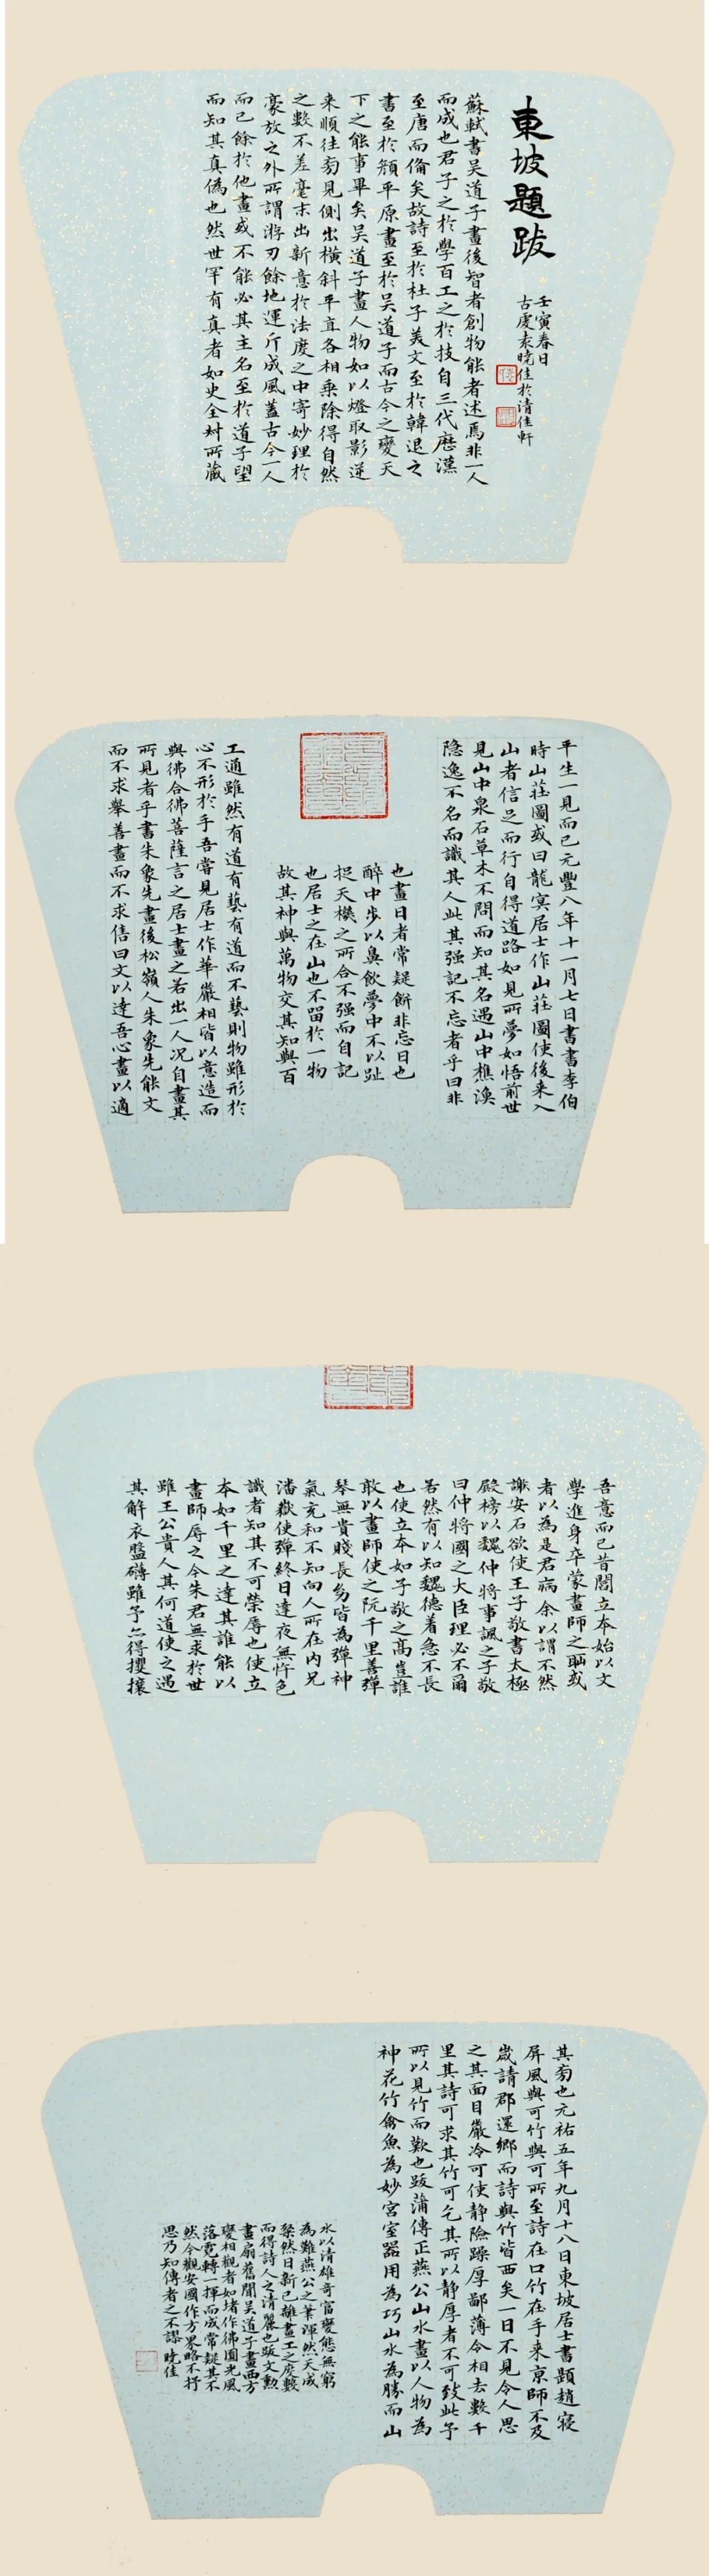 東坡題跋
壬寅春日
古虞袁曉佳於清佳軒
蘇軾書吴道子畫後智者創物能者述焉非一人
而成也君子之於學百工之於技自三代歷漢
至唐而備矣故詩至於杜子美文至於韓退之
書至於顏平原畫至於吴道子而古今之變天
下之能事畢矣吴道子畫人物如以燈取影逆
来順往旁見側出橫斜平直各相乘除得自然
之數不差毫末出新意於法度之中寄妙理於
豪放之外所謂游刃餘地運斤成風蓋古今一人
而已餘於他畫或不能必其主名至於道子望
而知其真偽也然世罕有真者如史全叔所藏
平生一見而已元豐八年十一月七日書書李伯
時山莊圖或曰龍宾居士作山莊圖使後来入
山者信足而行自得道路如見所夢如悟前世
見山中泉石草木不問而知其名遇山中樵漁
隐逸不名而識其人此其强記不忘者乎曰非
也畫日者常疑餅非忘日也
醉中步以鼻飲夢中不以趾
捉天機之所合不强而自記
也居士之在山也不留於一物
故其神與萬物交其知與百
工通雖然有道有藝有道而不藝則物雖形於
心不形於手吾嘗見居士作華嚴相皆以意造而
與佛合佛菩薩言之居士畫之若出一人况自畫其
所見者乎書朱象先畫後松嶺人朱象先能文
而不求舉善畫而不求售曰文以達吾心畫以適
吾意而已昔閻立本始以文
學進身卒蒙畫師之耻或
者以為是君病余以謂不然
謝安石欲使王子敬書太極
殿榜以魏仲將事諷之子敬
曰仲將國之大臣理必不爾
若然有以知魏德着急不長
也使立本如子敬之高豈誰
敢以畫師使之阮千里善彈
琴無貴賤長幼皆為彈神
氣充和不知向人所在内兄
潘嶽使彈終日達夜無忤色
識者知其不可榮辱也使立
本如千里之達其誰能以
畫師辱之今朱君無求於世
雖王公貴人其何道使之遇
其解衣盤礴雖予亦得攫攘
其旁也元祐五年九月十八日東坡居士書題趙㝛
屏風與可竹與可所至詩在口竹在手来京師不及
歲請郡還鄉而詩與竹皆西矣一日不見令人思
之其面目嚴冷可使静險躁厚鄙薄今相去數千
里其詩可求其竹可乞其所以静厚者不可致此予
所以見竹而歎也跋蒲傳正燕公山水畫以人物為
神花竹禽魚為妙宫室器用為巧山水為勝而山
水以清雄奇富變態無窮
為難燕公之筆渾然天成
粲然日新已離畫工之度數
而得詩人之清麗也跋文勳
畫扇舊聞吴道子畫西方
變相觀者如堵作佛圆光風
落電轉一揮而成常疑其不
然今觀安國作方界略不抒
思乃知傳者之不謬曉佳